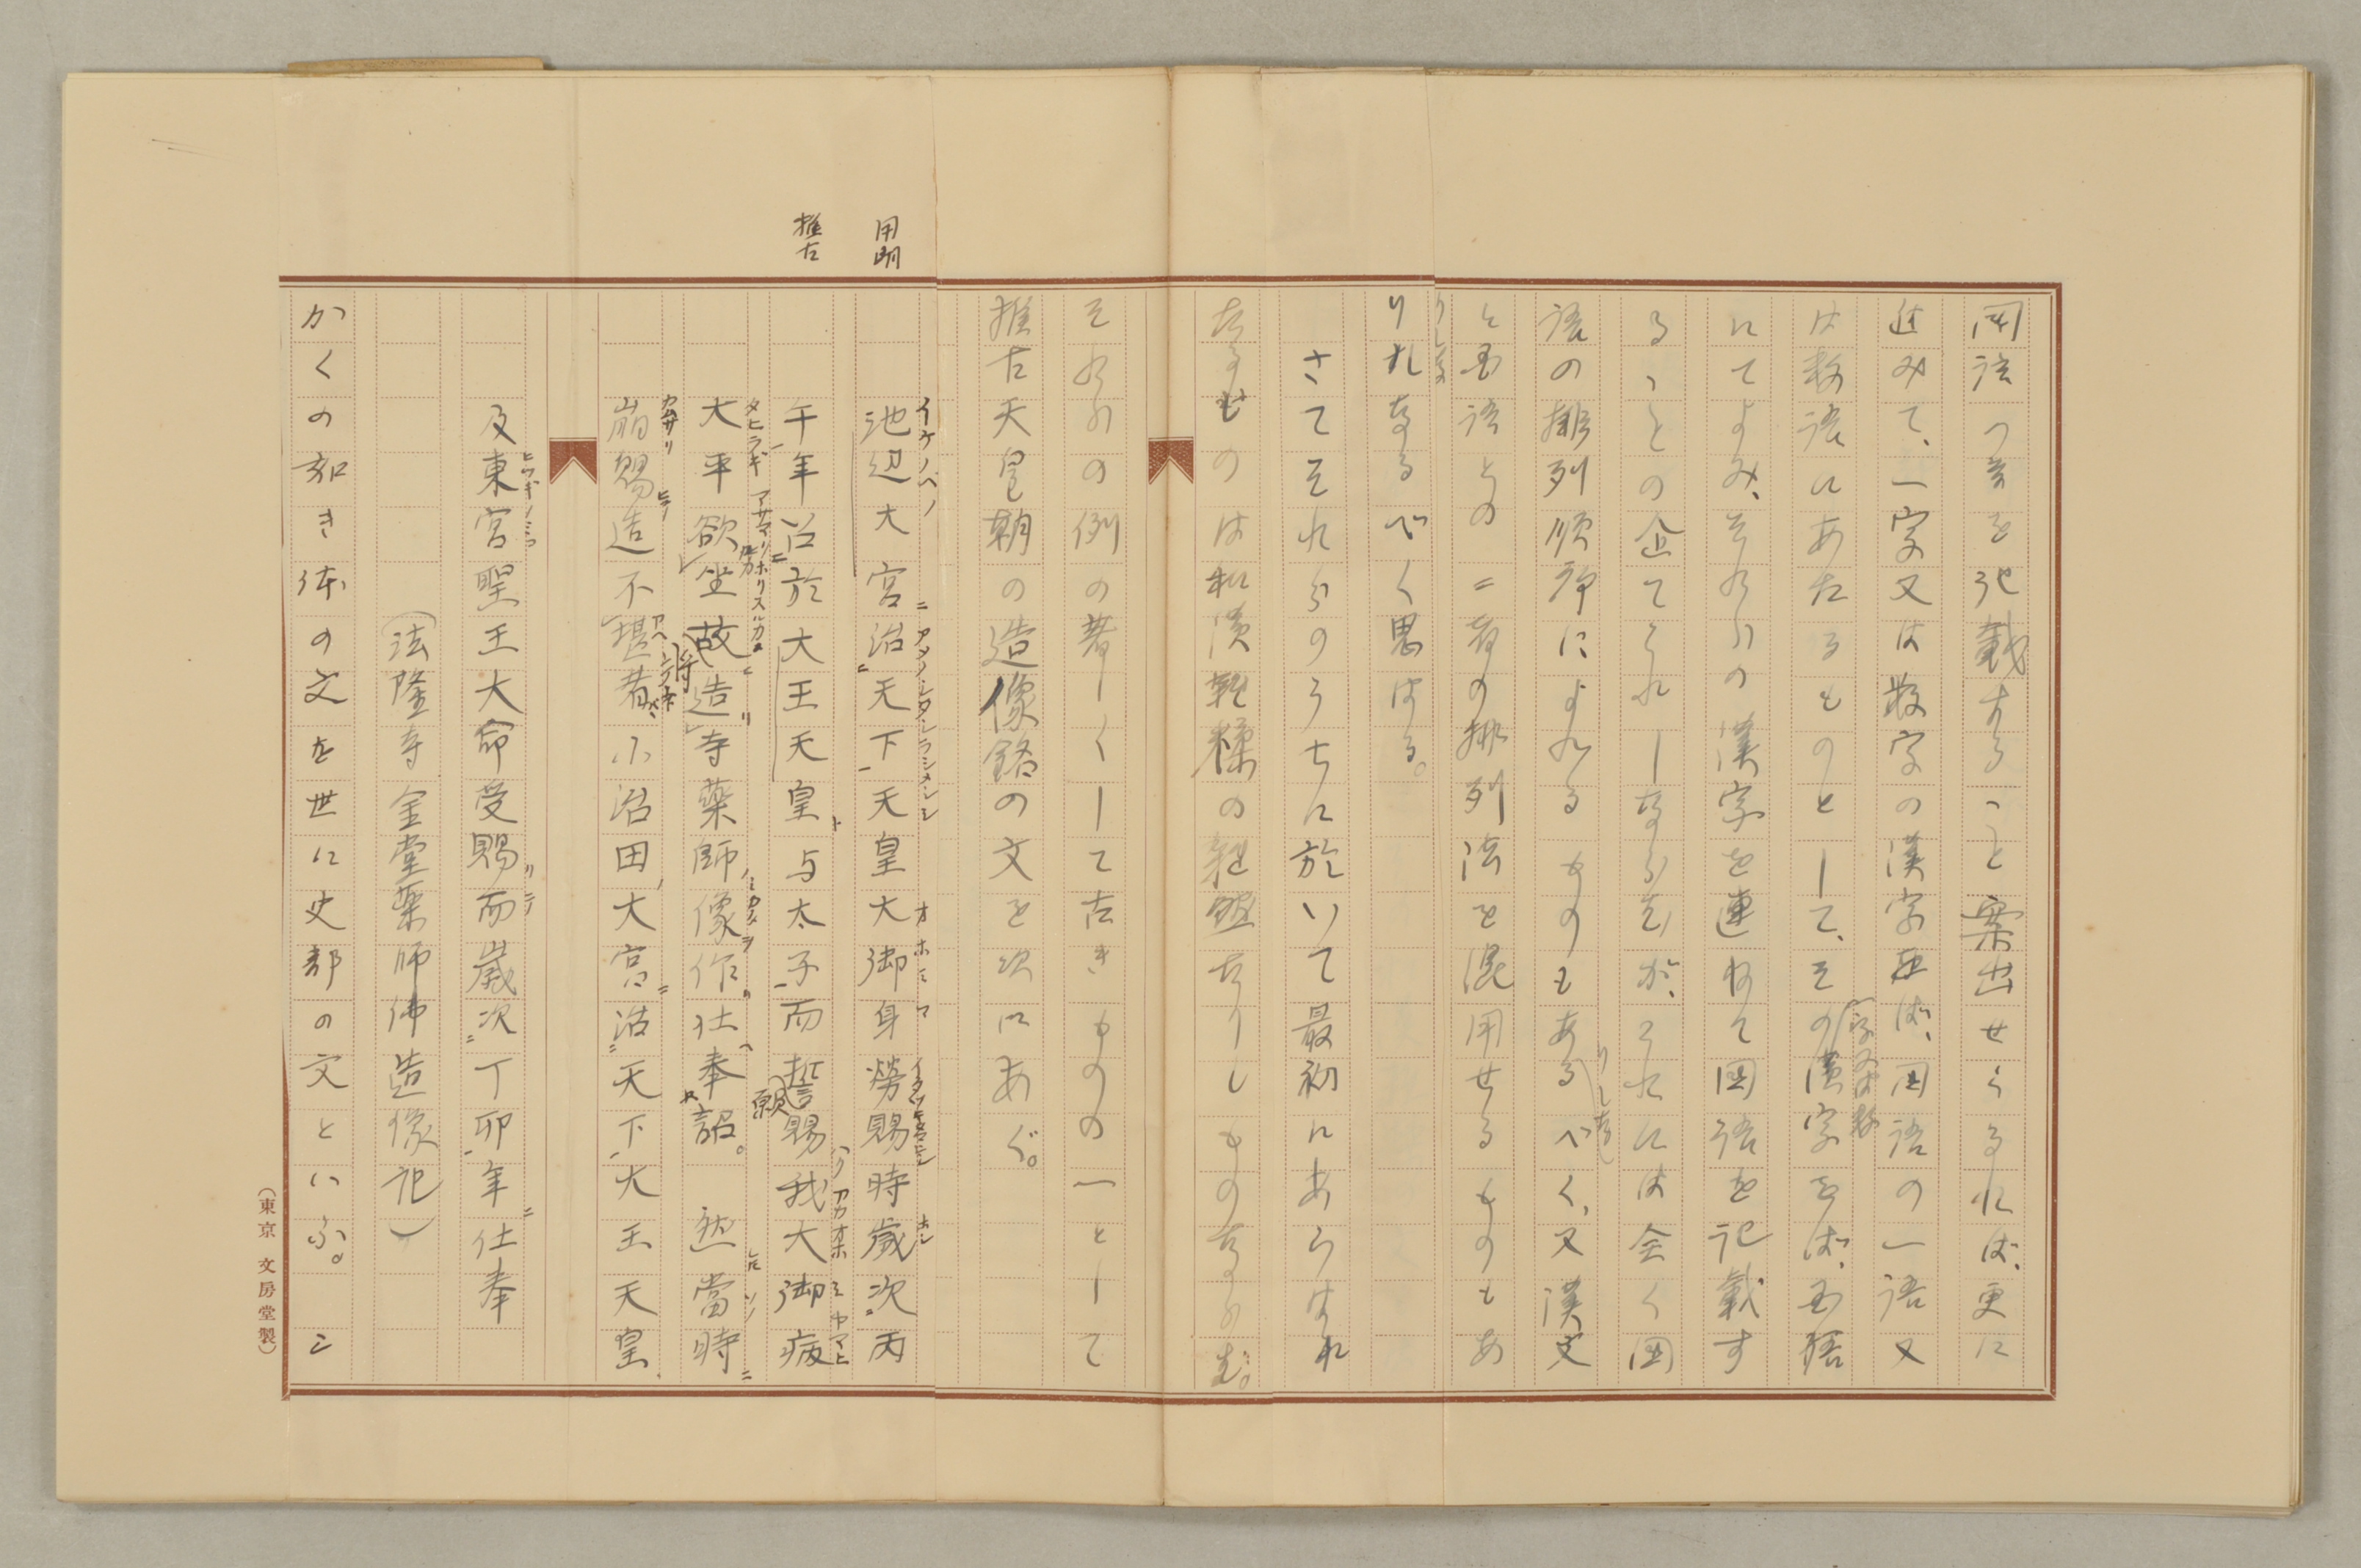 国語のまゝを記載すること案出せらるれば、更に
進みて、一字又は数字の漢字をば、国語の一語又
は数語にあたるものとして、その漢字をば、国語
(一字又は数
にてよみ、それらの漢字を連ねて国語を記載す
ることの企てられしならむが、これには全く国
語の排列順序によれるものもあるべく、又漢文
りしなる
と国語との二者の排列法を混用せるものもあ
りしな
りれなるべく思はる。
さてそれらのうちに於いて最初にあらはれ
たるものは和漢混糅の雑体なりしものならむ。
それらの例の著しくして古きものの一として
推古天皇朝の造像銘の文を次にあぐ。
用明
池辺大宮治天下天皇大御身労賜時歳次丙
推古
午年召於大王天皇与太子而誓賜我大御病
願
大平欲坐故造寺薬師像作仕奉詔。然當時
将
崩賜造不堪者小治田大宮治天下大王天皇
及東宮聖王大命受賜而歳次丁卯年仕奉
(法隆寺金堂薬師佛造像記)
かくの如き体の文を世に史部の文といふ。こ
(東京 文房堂製)